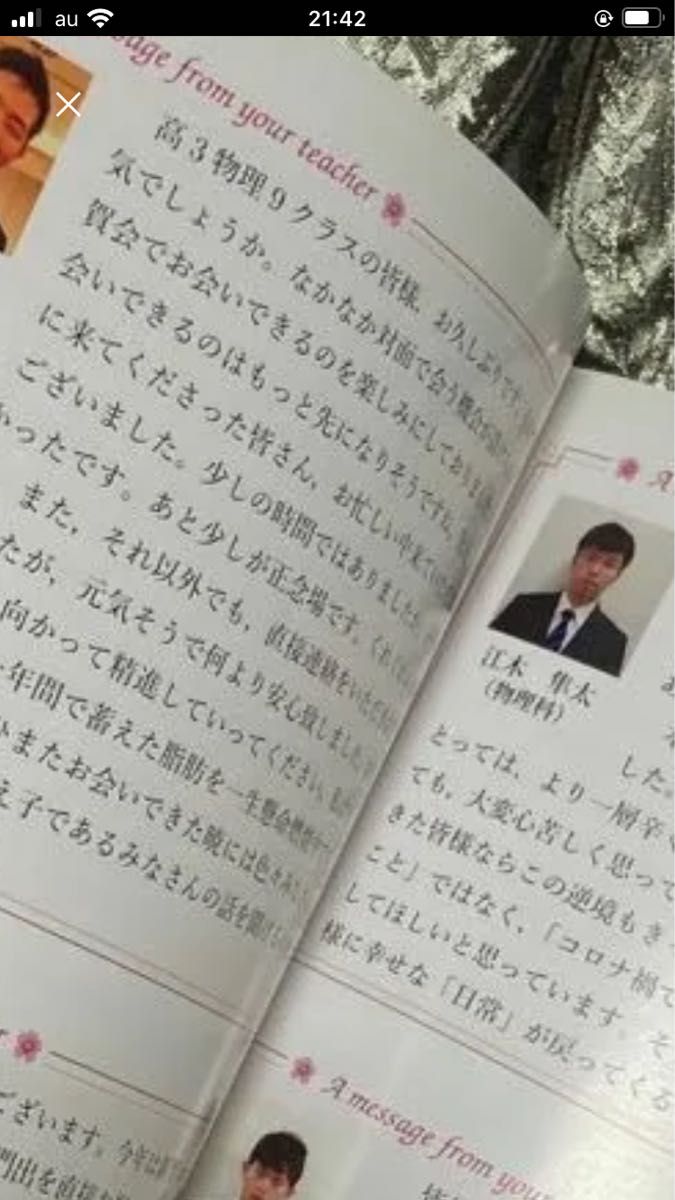 au
21:42
ssage from your teacher
高3物理9クラスの皆様、お久しぶりです
気でしょうか。なかなか対面で会う機会が
賀会でお会いできるのを楽しみにしておりま
会いできるのはもっと先になりそうですね。
に来てくださった皆さん、お忙しい中来て
ございました。少しの時間ではありました
かったです。あと少しが正念場です。
また、それ以外でも、直接連絡をいただ
たが、元気そうで何より安心致しました。
向かって精進していってください。
一年間で蓄えた脂肪を一生懸命燃
またお会いできた暁には色々
え子であるみなさんの話を聞
ございます。今年は
門出を直接
A
江木 隼太
(物理科)
した。
とっては、より一層辛
ても、大変心苦しく思って
きた皆様ならこの逆境もき
こと」ではなく、「コロナ禍で
してほしいと思っています。そ
様に幸せな「日常」が戻ってくる
A message from you